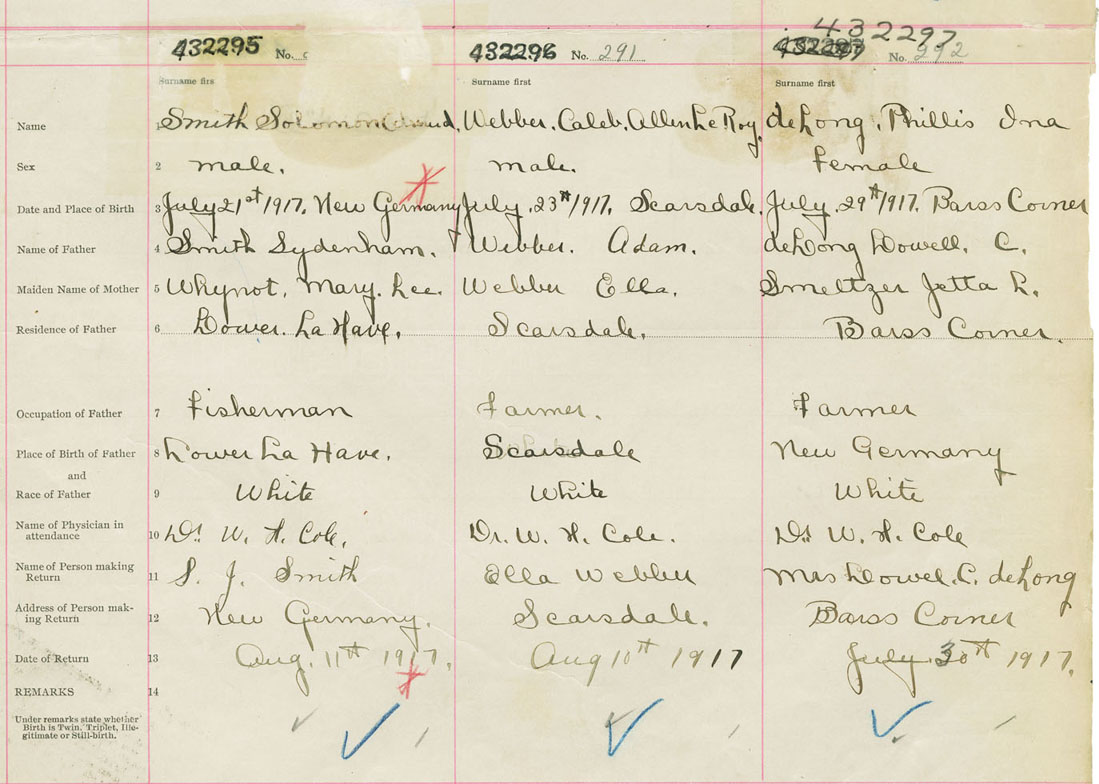 432297
432295 No. 432296 No. 291 432297 No. 292
Surname firs Surname first Surname first
Name 1 Smith Solomon Webber. Caleb. Allen Le Roy. deLong, Phillis Ina
Sex 2 male. male. Female
Date and Place of Birth 3 July 21st/1917. New Germany July, 23rd/1917. Scarsdale. July, 29th/1917. Barss Corner
Name of Father 4 Smith Sydenham. Webber. Adam. deLong Lowell. C.
Maiden Name of Mother 5 Whynot, Mary. Lee. Webber Ella. Smeltzer Jetta L.
Residence of Father 6 Lower. La Have. Scarsdale. Barss Corner.
Occupation of Father 7 Fisherman Farmer. Farmer
Place of Birth of Father 8 Lower La Have. Scarsdale New Germany
and
Race of Father 9 White White White
Name of Physician in
attendance 10 Dr. W. H. Cole. Dr. W. H. Cole. Dr. W. H. Cole
Name of Person making
Return 11 S. J. Smith Ella Webber Mrs Lowel. C. deLong
Address of Person mak-
ing Return 12 New Germany. Scarsdale. Barss Corner
Date of Return 13 Aug. 11th 1917. Aug 10th 1917 July 30th 1917.
REMARKS 14
Under remarks state whether
Birth is Twin, Triplet, Ille-
gitimate or Still-birth.